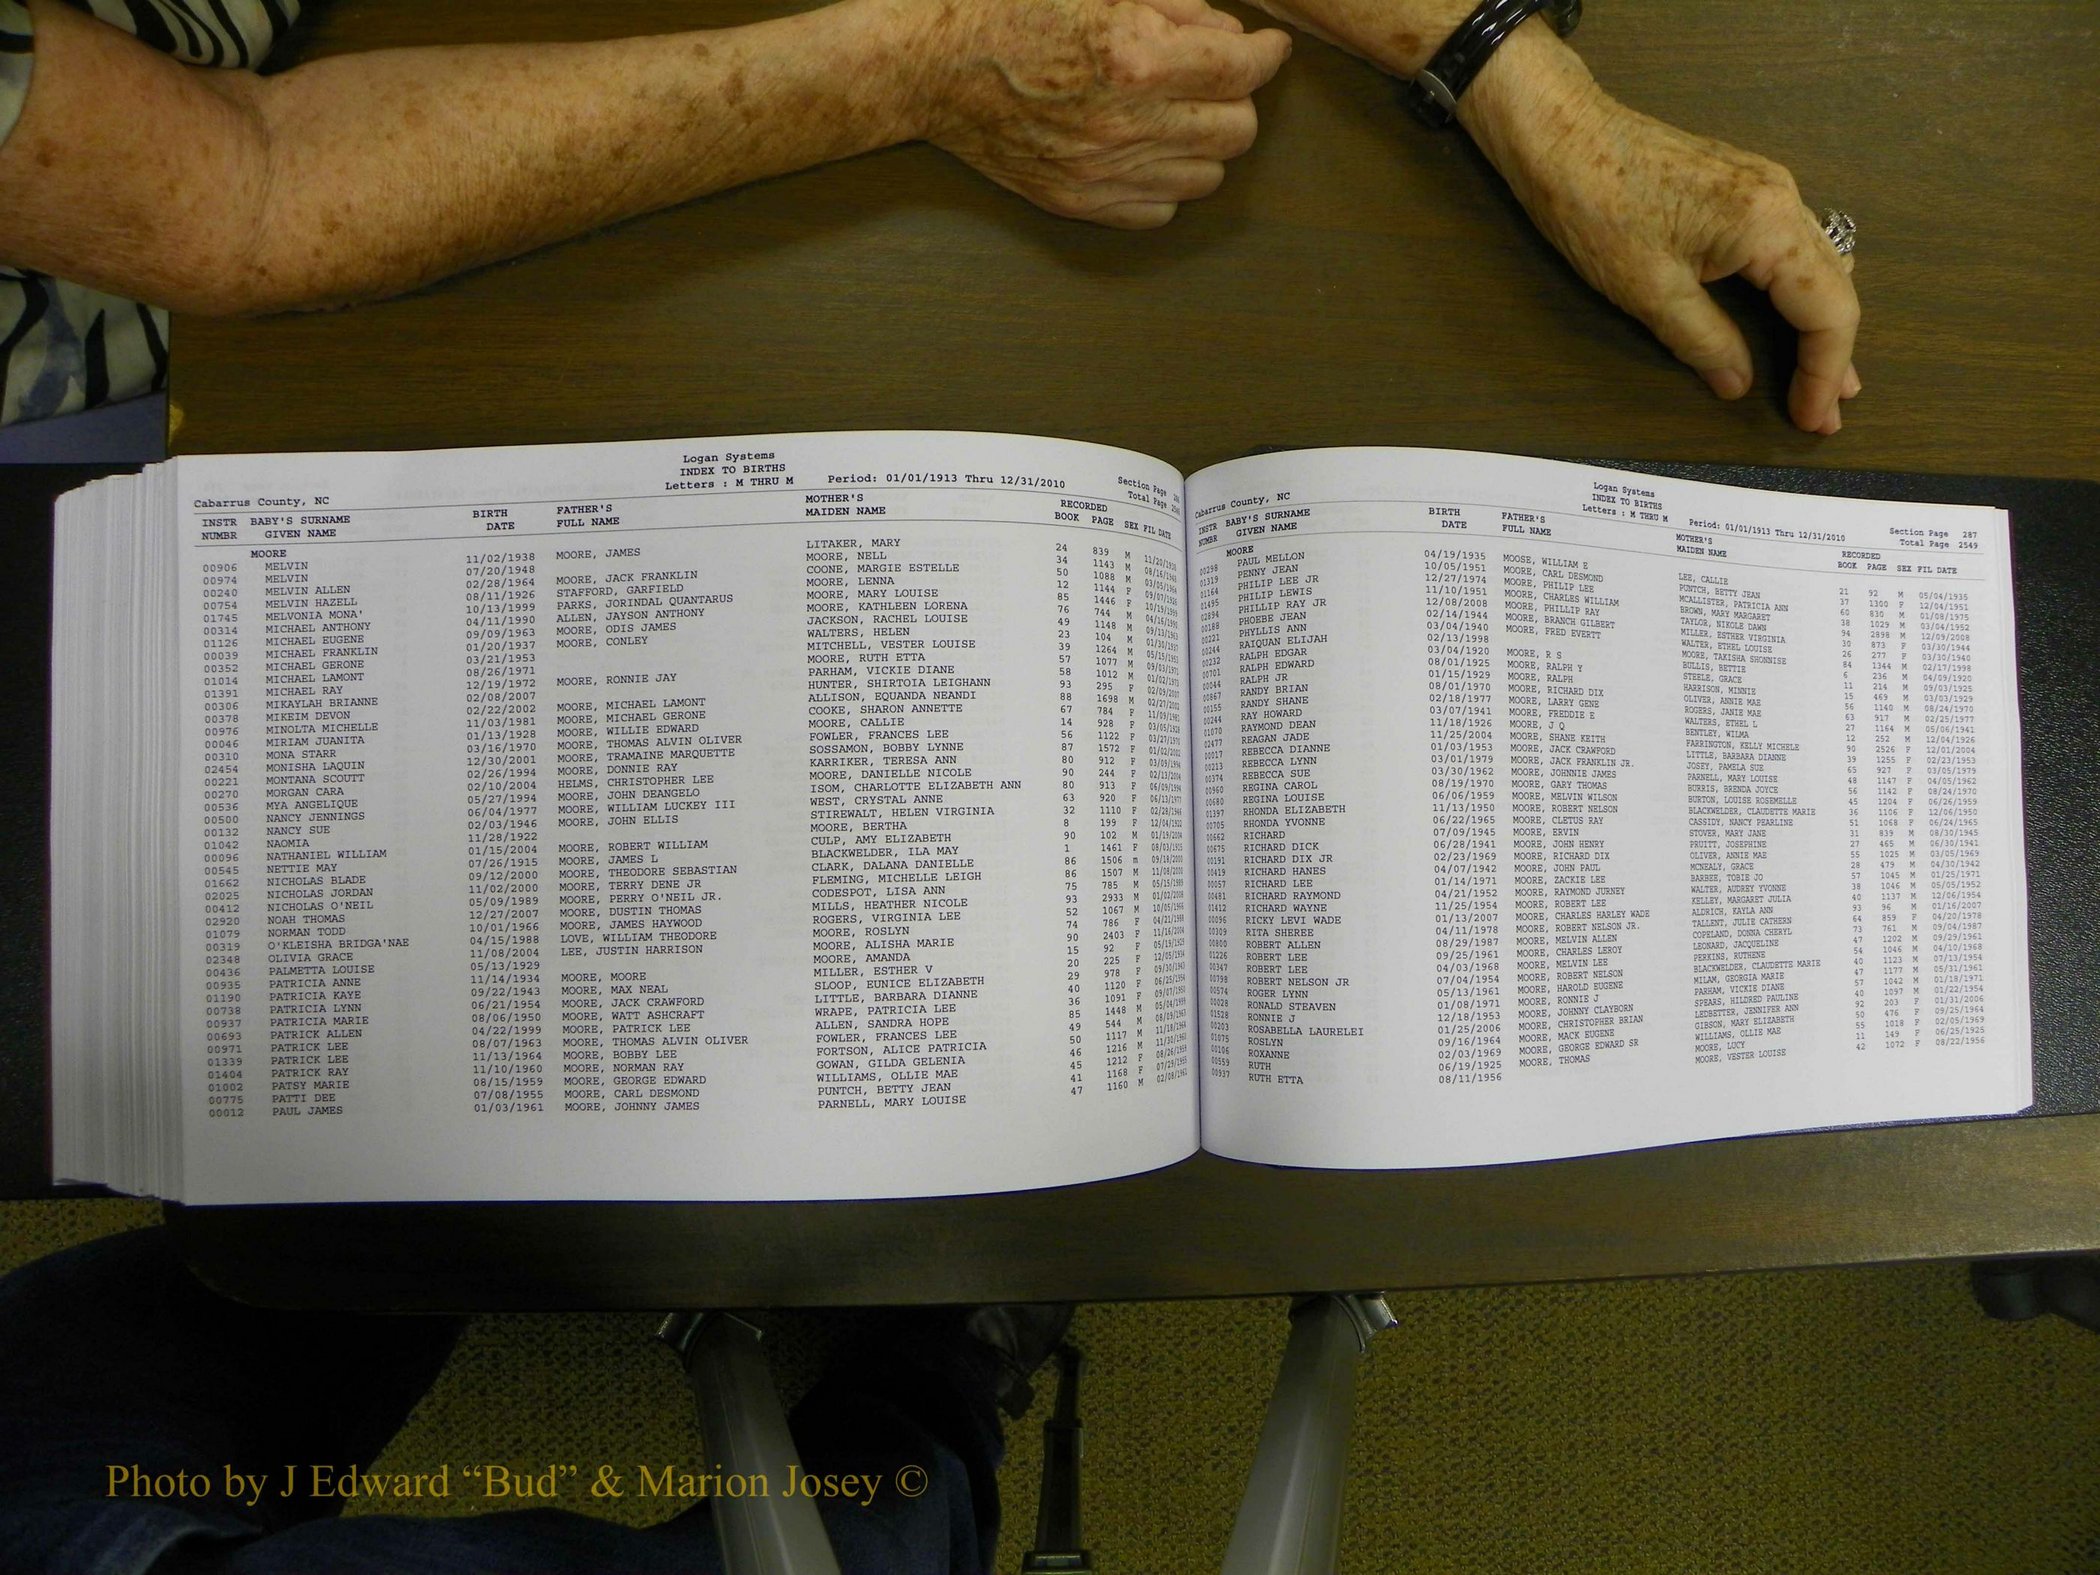 Logan Systems
INDEX TO BIRTHS
Letters : M THRU M Period: 01/01/1913 Thru 12/31/2010
Section Page
Total Page
Cabarrus County, NC
INSTR BABY'S SURNAME BIRTH FATHER'S MOTHER'S RECORDED
NUMBR GIVEN NAME DATE FULL NAME MAIDEN NAME BOOK PAGE SEX FIL DATE
MOORE
00906 MELVIN 11/02/1938 MOORE, JAMES LITAKER, MARY 24 839 M
00974 MELVIN 07/20/1948 MOORE, NELL 34 1143 M
00240 MELVIN ALLEN 02/28/1964 MOORE, JACK FRANKLIN COONE, MARGIE ESTELLE 50 1088 M
00754 MELVIN HAZELL 08/11/1926 STAFFORD, GARFIELD MOORE, LENNA 12 1144 F
01745 MELVONIA MONA' 10/13/1999 PARKS, JORINDAL QUANTARUS MOORE, MARY LOUISE 85 1446 F
00314 MICHAEL ANTHONY 04/11/1990 ALLEN, JAYSON ANTHONY MOORE, KATHLEEN LORENA 76 744 M
01126 MICHAEL EUGENE 09/09/1963 MOORE, ODIS JAMES JACKSON, RACHEL LOUISE 49 1148 M
00039 MICHAEL FRANKLIN 01/20/1937 MOORE, CONLEY WALTERS, HELEN 23 104 M
00352 MICHAEL GERONE 03/21/1953 MITCHELL, VESTER LOUISE 39 1264 M
01014 MICHAEL LAMONT 08/26/1971 MOORE, RUTH ETTA 57 1077 M
01391 MICHAEL RAY 12/19/1972 MOORE, RONNIE JAY PARHAM, VICKIE DIANE 58 1012 M
00306 MIKAYLAH BRIANNE 02/08/2007 HUNTER, SHIRTOIA LEIGHANN 93 295 F
00378 MIKEIM DEVON 02/22/2002 MOORE, MICHAEL LAMONT ALLISON, EQUANDA NEANDI 88 1698 M
00976 MINOLTA MICHELLE 11/03/1981 MOORE, MICHAEL GERONE COOKE, SHARON ANNETTE 67 784 F
00046 MIRIAM JUANITA 01/13/1928 MOORE, WILLIE EDWARD MOORE, CALLIE 14 928 F
00310 MONA STARR 03/16/1970 MOORE, THOMAS ALVIN OLIVER FOWLER, FRANCES LEE 56 1122 F
02454 MONISHA LAQUIN 12/30/2001 MOORE, TRAMAINE MARQUETTE SOSSAMON, BOBBY LYNNE 87 1572 F
00221 MONTANA SCOUTT 02/26/1994 MOORE, DONNIE RAY KARRIKER, TERESA ANN 80 912 F
00270 MORGAN CARA 02/10/2004 HELMS, CHRISTOPHER LEE MOORE, DANIELLE NICOLE 90 244 F
00536 MYA ANGELIQUE 05/27/1994 MOORE, JOHN DEANGELO ISOM, CHARLOTTE ELIZABETH ANN 80 913 F
00500 NANCY JENNINGS 06/04/1977 MOORE, WILLIAM LUCKEY III WEST, CRYSTAL ANNE 63 920 F
00132 NANCY SUE 02/03/1946 MOORE, JOHN ELLIS STIREWALT, HELEN VIRGINIA 32 1110 F
01042 NAOMIA 11/28/1922 MOORE, BERTHA 8 199 F
00096 NATHANIEL WILLIAM 01/15/2004 MOORE, ROBERT WILLIAM CULP, AMY ELIZABETH 90 102 M
00545 NETTIE MAY 07/26/1915 MOORE, JAMES L BLACKWELDER, ILA MAY 1 1461 F
01662 NICHOLAS BLADE 09/12/2000 MOORE, THEODORE SEBASTIAN CLARK, DALANA DANIELLE 86 1506 m
02025 NICHOLAS JORDAN 11/02/2000 MOORE, TERRY DENE JR FLEMING, MICHELLE LEIGH 86 1507 M
00412 NICHOLAS O'NEIL 05/09/1989 MOORE, PERRY O'NEIL JR. CODESPOT, LISA ANN 75 785 M
02920 NOAH THOMAS 12/27/2007 MOORE, DUSTIN THOMAS MILLS, HEATHER NICOLE 93 2933 M
01079 NORMAN TODD 10/01/1966 MOORE, JAMES HAYWOOD ROGERS, VIRGINIA LEE 52 1067 M
00319 O'KLEISHA BRIDGA'NAE 04/15/1988 LOVE, WILLIAM THEODORE MOORE, ROSLYN 74 786 F
02348 OLIVIA GRACE 11/08/2004 LEE, JUSTIN HARRISON MOORE, ALISHA MARIE 90 2403 F
00436 PALMETTA LOUISE 05/13/1929 MOORE, AMANDA 15 92 F
00935 PATRICIA ANNE 11/14/1934 MOORE, MOORE MILLER, ESTHER V 20 225 F
01190 PATRICIA KAYE 09/22/1943 MOORE, MAX NEAL SLOOP, EUNICE ELIZABETH 29 978 F
00738 PATRICIA LYNN 06/21/1954 MOORE, JACK CRAWFORD LITTLE, BARBARA DIANNE 40 1120 F
00937 PATRICIA MARIE 08/06/1950 MOORE, WATT ASHCRAFT WRAPE, PATRICIA LEE 36 1091 F
00693 PATRICK ALLEN 04/22/1999 MOORE, PATRICK LEE ALLEN, SANDRA HOPE 85 1448 M
00971 PATRICK LEE 08/07/1963 MOORE, THOMAS ALVIN OLIVER FOWLER, FRANCES LEE 49 544 M
01339 PATRICK LEE 11/13/1964 MOORE, BOBBY LEE FORTSON, ALICE PATRICIA 50 1117 M
01404 PATRICK RAY 11/10/1960 MOORE, NORMAN RAY GOWAN, GILDA GELENIA 46 1216 M
01002 PATSY MARIE 08/15/1959 MOORE, GEORGE EDWARD WILLIAMS, OLLIE MAE 45 1212 F
00775 PATTI DEE 07/08/1955 MOORE, CARL DESMOND PUNTCH, BETTY JEAN 41 1168 F
00012 PAUL JAMES 01/03/1961 MOORE, JOHNNY JAMES PARNELL, MARY LOUISE 47 1160 M
Logan Systems
INDEX TO BIRTHS
Letters : M THRU M Period: 01/01/1913 Thru 12/31/2010
Section Page 287
Total Page 2549
Cabarrus County, NC
INSTR BABY'S SURNAME BIRTH FATHER'S MOTHER'S RECORDED
NUMBR GIVEN NAME DATE FULL NAME MAIDEN NAME BOOK PAGE SEX FIL DATE
MOORE
00298 PAUL MELLON 04/19/1935 MOOSE, WILLIAM E LEE, CALLIE 21 92 M 05/04/1935
01319 PENNY JEAN 10/05/1951 MOORE, CARL DESMOND PUNTCH, BETTY JEAN 37 1300 F 12/04/1951
01164 PHILIP LEE JR 12/27/1974 MOORE, PHILIP LEE MCALLISTER, PATRICIA ANN 60 830 M 01/08/1975
01495 PHILIP LEWIS 11/10/1951 MOORE, CHARLES WILLIAM BROWN, MARY MARGARET 38 1029 M 03/04/1952
02894 PHILLIP RAY JR 12/08/2008 MOORE, PHILLIP RAY TAYLOR, NIKOLE DAWN 94 2898 M 12/09/2008
00188 PHOEBE JEAN 02/14/1944 MOORE, BRANCH GILBERT MILLER, ESTHER VIRGINIA 30 873 F 03/30/1944
00221 PHYLLIS ANN 03/04/1940 MOORE, FRED EVERTT WALTER, ETHEL LOUISE 26 277 F 03/30/1940
00244 RAIQUAN ELIJAH 02/13/1998 MOORE, TAKISHA SHONNISE 84 1344 M 02/17/1998
00232 RALPH EDGAR 03/04/1920 MOORE, R S BULLIS, BETTIE 6 236 M 04/09/1920
00701 RALPH EDWARD 08/01/1925 MOORE, RALPH Y STEELE, GRACE 11 214 M 09/03/1925
00044 RALPH JR 01/15/1929 MOORE, RALPH HARRISON, MINNIE 15 469 M 03/03/1929
00867 RANDY BRIAN 08/01/1970 MOORE, RICHARD DIX OLIVER, ANNIE MAE 56 1140 M 08/24/1970
00155 RANDY SHANE 02/18/1977 MOORE, LARRY GENE ROGERS, JANIE MAE 63 917 M 02/25/1977
00244 RAY HOWARD 03/07/1941 MOORE, FREDDIE E WALTERS, ETHEL L 27 1164 M 05/06/1941
01070 RAYMOND DEAN 11/18/1926 MOORE, J Q BENTLEY, WILMA 12 252 M 12/04/1926
02477 REAGAN JADE 11/25/2004 MOORE, SHANE KEITH FARRINGTON, KELLY MICHELE 90 2526 F 12/01/2004
00017 REBECCA DIANNE 01/03/1953 MOORE, JACK CRAWFORD LITTLE, BARBARA DIANNE 39 1255 F 02/23/1953
00213 REBECCA LYNN 03/01/1979 MOORE, JACK FRANKLIN JR. JOSEY, PAMELA SUE 65 927 F 03/05/1979
00374 REBECCA SUE 03/30/1962 MOORE, JOHNNIE JAMES PARNELL, MARY LOUISE 48 1147 F 04/05/1962
00960 REGINA CAROL 08/19/1970 MOORE, GARY THOMAS BURRIS, BRENDA JOYCE 56 1142 F 08/24/1970
00680 REGINA LOUISE 06/06/1959 MOORE, MELVIN WILSON BURTON, LOUISE ROSEMELLE 45 1204 F 06/26/1959
01397 RHONDA ELIZABETH 11/13/1950 MOORE, ROBERT NELSON BLACKWELDER, CLAUDETTE MARIE 36 1106 F 12/06/1950
00705 RHONDA YVONNE 06/22/1965 MOORE, CLETUS RAY CASSIDY, NANCY PEARLINE 51 1068 F 06/24/1965
00662 RICHARD 07/09/1945 MOORE, ERVIN STOVER, MARY JANE 31 839 M 08/30/1945
00675 RICHARD DICK 06/28/1941 MOORE, JOHN HENRY PRUITT, JOSEPHINE 27 465 M
00191 RICHARD DIX JR 02/23/1969 MOORE, RICHARD DIX OLIVER, ANNIE MAE 55 1025 M 03/05/1969
00419 RICHARD HANES 04/07/1942 MOORE, JOHN PAUL MCNEALY, GRACE 28 479 M 04/30/1942
00057 RICHARD LEE 01/14/1971 MOORE, ZACKIE LEE BARBEE, TOBIE JO 57 1045 M 01/25/1971
00481 RICHARD RAYMOND 04/21/1952 MOORE, RAYMOND JURNEY WALTER, AUDREY YVONNE 38 1046 M 05/05/1952
01412 RICHARD WAYNE 11/25/1954 MOORE, ROBERT LEE KELLEY, MARGARET JULIA 40 1137 M 12/06/1954
00096 RICKY LEVI WADE 01/13/2007 MOORE, CHARLES HARLEY WADE ALDRICH, KAYLA ANN 93 96 M 01/16/2007
00309 RITA SHEREE 04/11/1978 MOORE, ROBERT NELSON JR. TALLENT, JULIE CATHERN 64 859 F 04/20/1978
00800 ROBERT ALLEN 08/29/1987 MOORE, MELVIN ALLEN COPELAND, DONNA CHERYL 73 761 M 09/04/1987
01226 ROBERT LEE 09/25/1961 MOORE, CHARLES LEROY LEONARD, JACQUELINE 47 1202 M 09/29/1961
00347 ROBERT LEE 04/03/1968 MOORE, MELVIN LEE PERKINS, RUTHENE 54 1046 M 04/10/1968
00798 ROBERT NELSON JR 07/04/1954 MOORE, ROBERT NELSON BLACKWELDER, CLAUDETTS MARIE 40 1123 M 07/13/1954
00574 ROGER LYNN 05/13/1961 MOORE, HAROLD EUGENE MILAM, GEORGIA MARIE 47 1177 M 05/31/1961
00028 RONALD STEAVEN 01/08/1971 MOORE, RONNIE J PARHAM, VICKIE DIANE 57 1042 M 01/18/1971
01528 RONNIE J 12/18/1953 MOORE, JOHNNY CLAYBORN SPEARS, HILDRED PAULINE 40 1097 M 01/22/1954
00203 ROSABELLA LAURELEI 01/25/2006 MOORE, CHRISTOPHER BRIAN LEDBETTER, JENNIFER ANN 92 203 F 01/31/2006
01075 ROSLYN 09/16/1964 MOORE, MACK EUGENE GIBSON, MARY ELIZABETH 50 476 F 09/25/1964
00106 ROXANNE 02/03/1969 MOORE, GEORGE EDWARD SR WILLIAMS, OLLIE MAE 55 1018 F 02/05/1969
00559 RUTH 06/19/1925 MOORE, THOMAS MOORE, LUCY 11 149 F 06/25/1925
00937 RUTH ETTA 08/11/1956 MOORE, VESTER LOUISE 42 1072 F 08/22/1956
Photo by J Edward “Bud” & Marion Josey ©